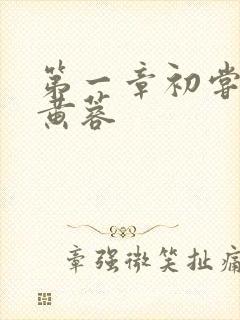 第一章初尝
黄蓉
章强微笑扯痛